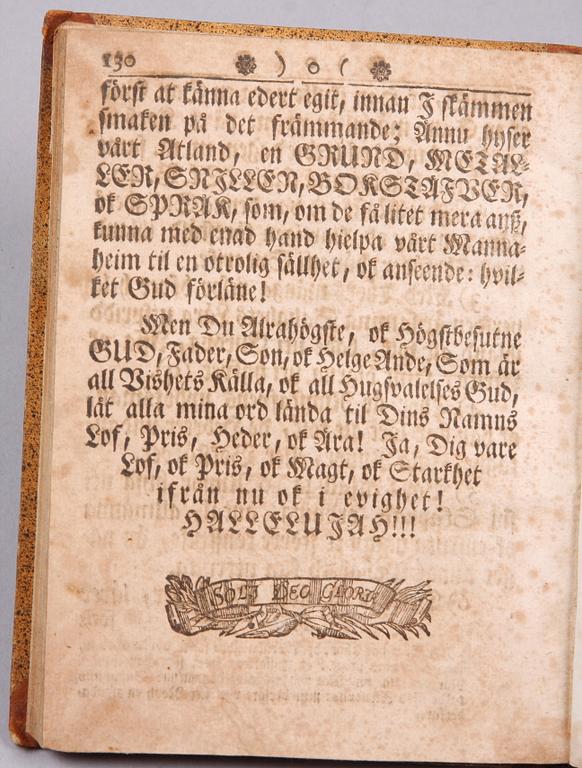 130 ) o (
först at känna edert egit, innan J skämmen
smaken på det främmande; Ännu hyser
vårt Atland, en GRUND, METAL-
LER, SNILLEN, BOKSTAFVER,
ok SPRÅK, som, om de få litet mera ans,
kunna med enad hand hielpa vårt Manna-
heim til en otrolig sällhet, ok anseende: hvil-
ket Gud förläne!
Men Du Alrahögste, ok Högstbesutne
GUD, Fader, Son, ok Helge Ande, Som är
all Vishets Källa, ok all Hugsvalelses Gud,
låt alla mina ord lända til Dins Namns
Lof, Pris, Heder, ok Ära! Ja, Dig vare
Lof, ok Pris, ok Magt, ok Starkhet
ifrån nu ok i evighet!
HALLELUJAH!!!
SOLI DEO GLORI